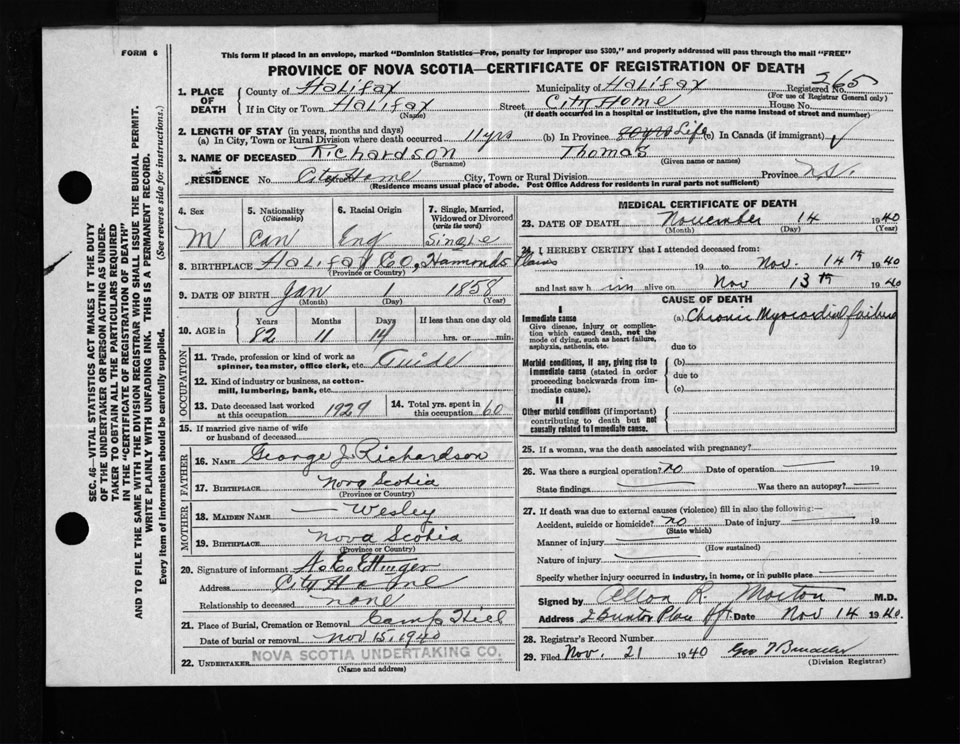 FORM 6
This form if placed in an envelope, marked "Dominion Statistics—Free, penalty for improper use $300," and properly addressed will pass through the mail "FREE"
PROVINCE OF NOVA SCOTIA—CERTIFICATE OF REGISTRATION OF DEATH
265
1. PLACE OF DEATH County of Halifax Municipality of Halifax Registered No.
(For use of Registrar General only)
If in City or Town Halifax Street City Home House No.
(Name) (If death occurred in a hospital or institution, give the name instead of street and number)
2. LENGTH OF STAY (in years, months and days)
(a) In City, Town or Rural Division where death occurred 11 yrs (b) In Province Life (c) In Canada (if immigrant) ✓
3. NAME OF DECEASED Richardson Thomas
(Surname) (Given name or names)
RESIDENCE No. City Home City, Town or Rural Division Province N.S.
(Residence means usual place of abode. Post Office Address for residents in rural parts not sufficient)
4. Sex 5. Nationality (Citizenship) 6. Racial Origin 7. Single, Married, Widowed or Divorced (write the word)
M Can Eng Single
8. BIRTHPLACE Halifax Co, Hammonds Plains
(Province or Country)
9. DATE OF BIRTH Jan 1 1858
(Month) (Day) (Year)
10. AGE in Years Months Days If less than one day old
82 11 14 hrs. or min.
OCCUPATION
11. Trade, profession or kind of work as spinner, teamster, office clerk, etc. Guide
12. Kind of industry or business, as cotton-mill, lumbering, bank, etc.
13. Date deceased last worked at this occupation 1929 14. Total yrs. spent in this occupation 60
15. If married give name of wife or husband of deceased
FATHER
16. NAME George J. Richardson
17. BIRTHPLACE Nova Scotia
(Province or Country)
MOTHER
18. MAIDEN NAME — Wesley
19. BIRTHPLACE Nova Scotia
(Province or Country)
20. Signature of informant Ettinger
Address City Home
Relationship to deceased none
21. Place of Burial, Cremation or Removal Camp Hill
Date of burial or removal Nov 15, 1940
22. UNDERTAKER NOVA SCOTIA UNDERTAKING CO.
(Name and address)
MEDICAL CERTIFICATE OF DEATH
23. DATE OF DEATH November 14 1940
(Month) (Day) (Year)
24. I HEREBY CERTIFY that I attended deceased from:
19 to Nov. 14th 1940
and last saw h im alive on Nov 13th 1940
CAUSE OF DEATH
Immediate cause (a) Chronic Myocardial failure
Give disease, injury or complication which caused death, not the mode of dying, such as heart failure, asphyxia, asthenia, etc.
due to
Morbid conditions, if any, giving rise to immediate cause (stated in order proceeding backwards from immediate cause).
(b)
due to
(c)
II
Other morbid conditions (if important) contributing to death but not causally related to immediate cause.
25. If a woman, was the death associated with pregnancy?
26. Was there a surgical operation? no Date of operation — 19
State findings — Was there an autopsy? —
27. If death was due to external causes (violence) fill in also the following:—
Accident, suicide or homicide? no Date of injury — 19
(State which)
Manner of injury —
(How sustained)
Nature of injury —
Specify whether injury occurred in industry, in home, or in public place
Signed by R. Morton M.D.
Address Date Nov 14 1940.
28. Registrar's Record Number
29. Filed Nov. 21 1940
(Division Registrar)
SEC. 46—VITAL STATISTICS ACT MAKES IT THE DUTY
OF THE UNDERTAKER OR PERSON ACTING AS UNDER-
TAKER TO OBTAIN ALL THE PARTICULARS REQUIRED
IN THE "CERTIFICATE OF REGISTRATION OF DEATH"
AND TO FILE THE SAME WITH THE DIVISION REGISTRAR WHO SHALL ISSUE THE BURIAL PERMIT.
WRITE PLAINLY WITH UNFADING INK. THIS IS A PERMANENT RECORD.
Every item of information should be carefully supplied. (See reverse side for instructions.)